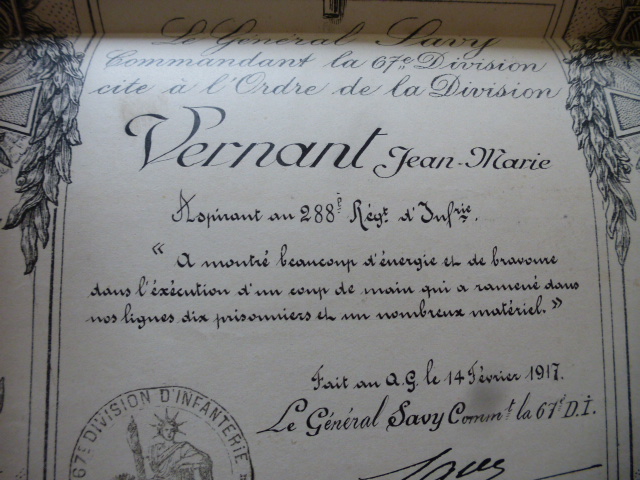 Le Général Savy
Commandant la 67e Division
cite à l'Ordre de la Division
Vernant Jean-Marie
Aspirant au 288e Régt d'Infrie.
" A montré beaucoup d'énergie et de bravoure
dans l'éxécution d'un coup de main qui a ramené dans
nos lignes dix prisonniers et un nombreux matériel. »
Fait au Q.G. le 14 Février 1917.
Le Général Savy Commt la 67e D.I.
67e DIVISION D'INFANTERIE
Savy